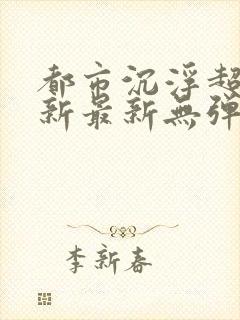 都市沉浮超
新最新無弹
李新春